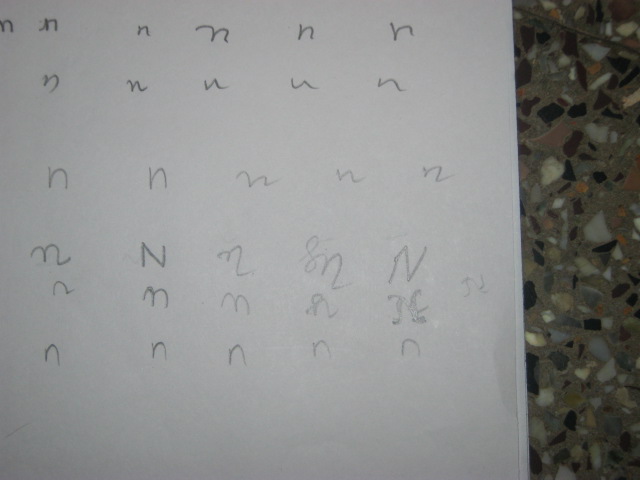 n n n n n n
n n n n n
n n n n n
n N n n N
n n n n
n n n n n